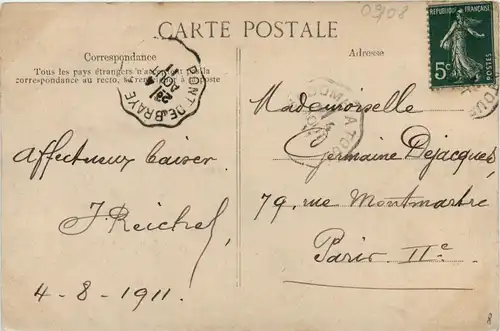 0908
CARTE POSTALE
Correspondance
Tous les pays étrangers n'acceptent pas la
correspondance au recto, se renseigner à la poste
Adresse
RÉPUBLIQUE FRANÇAISE
5c
PONT DE BRAYE
Affectueux baiser
J. Reichel
4-8-1911.
Mademoiselle
Germaine Dejacques
79, rue Montmartre
Paris IIe
8